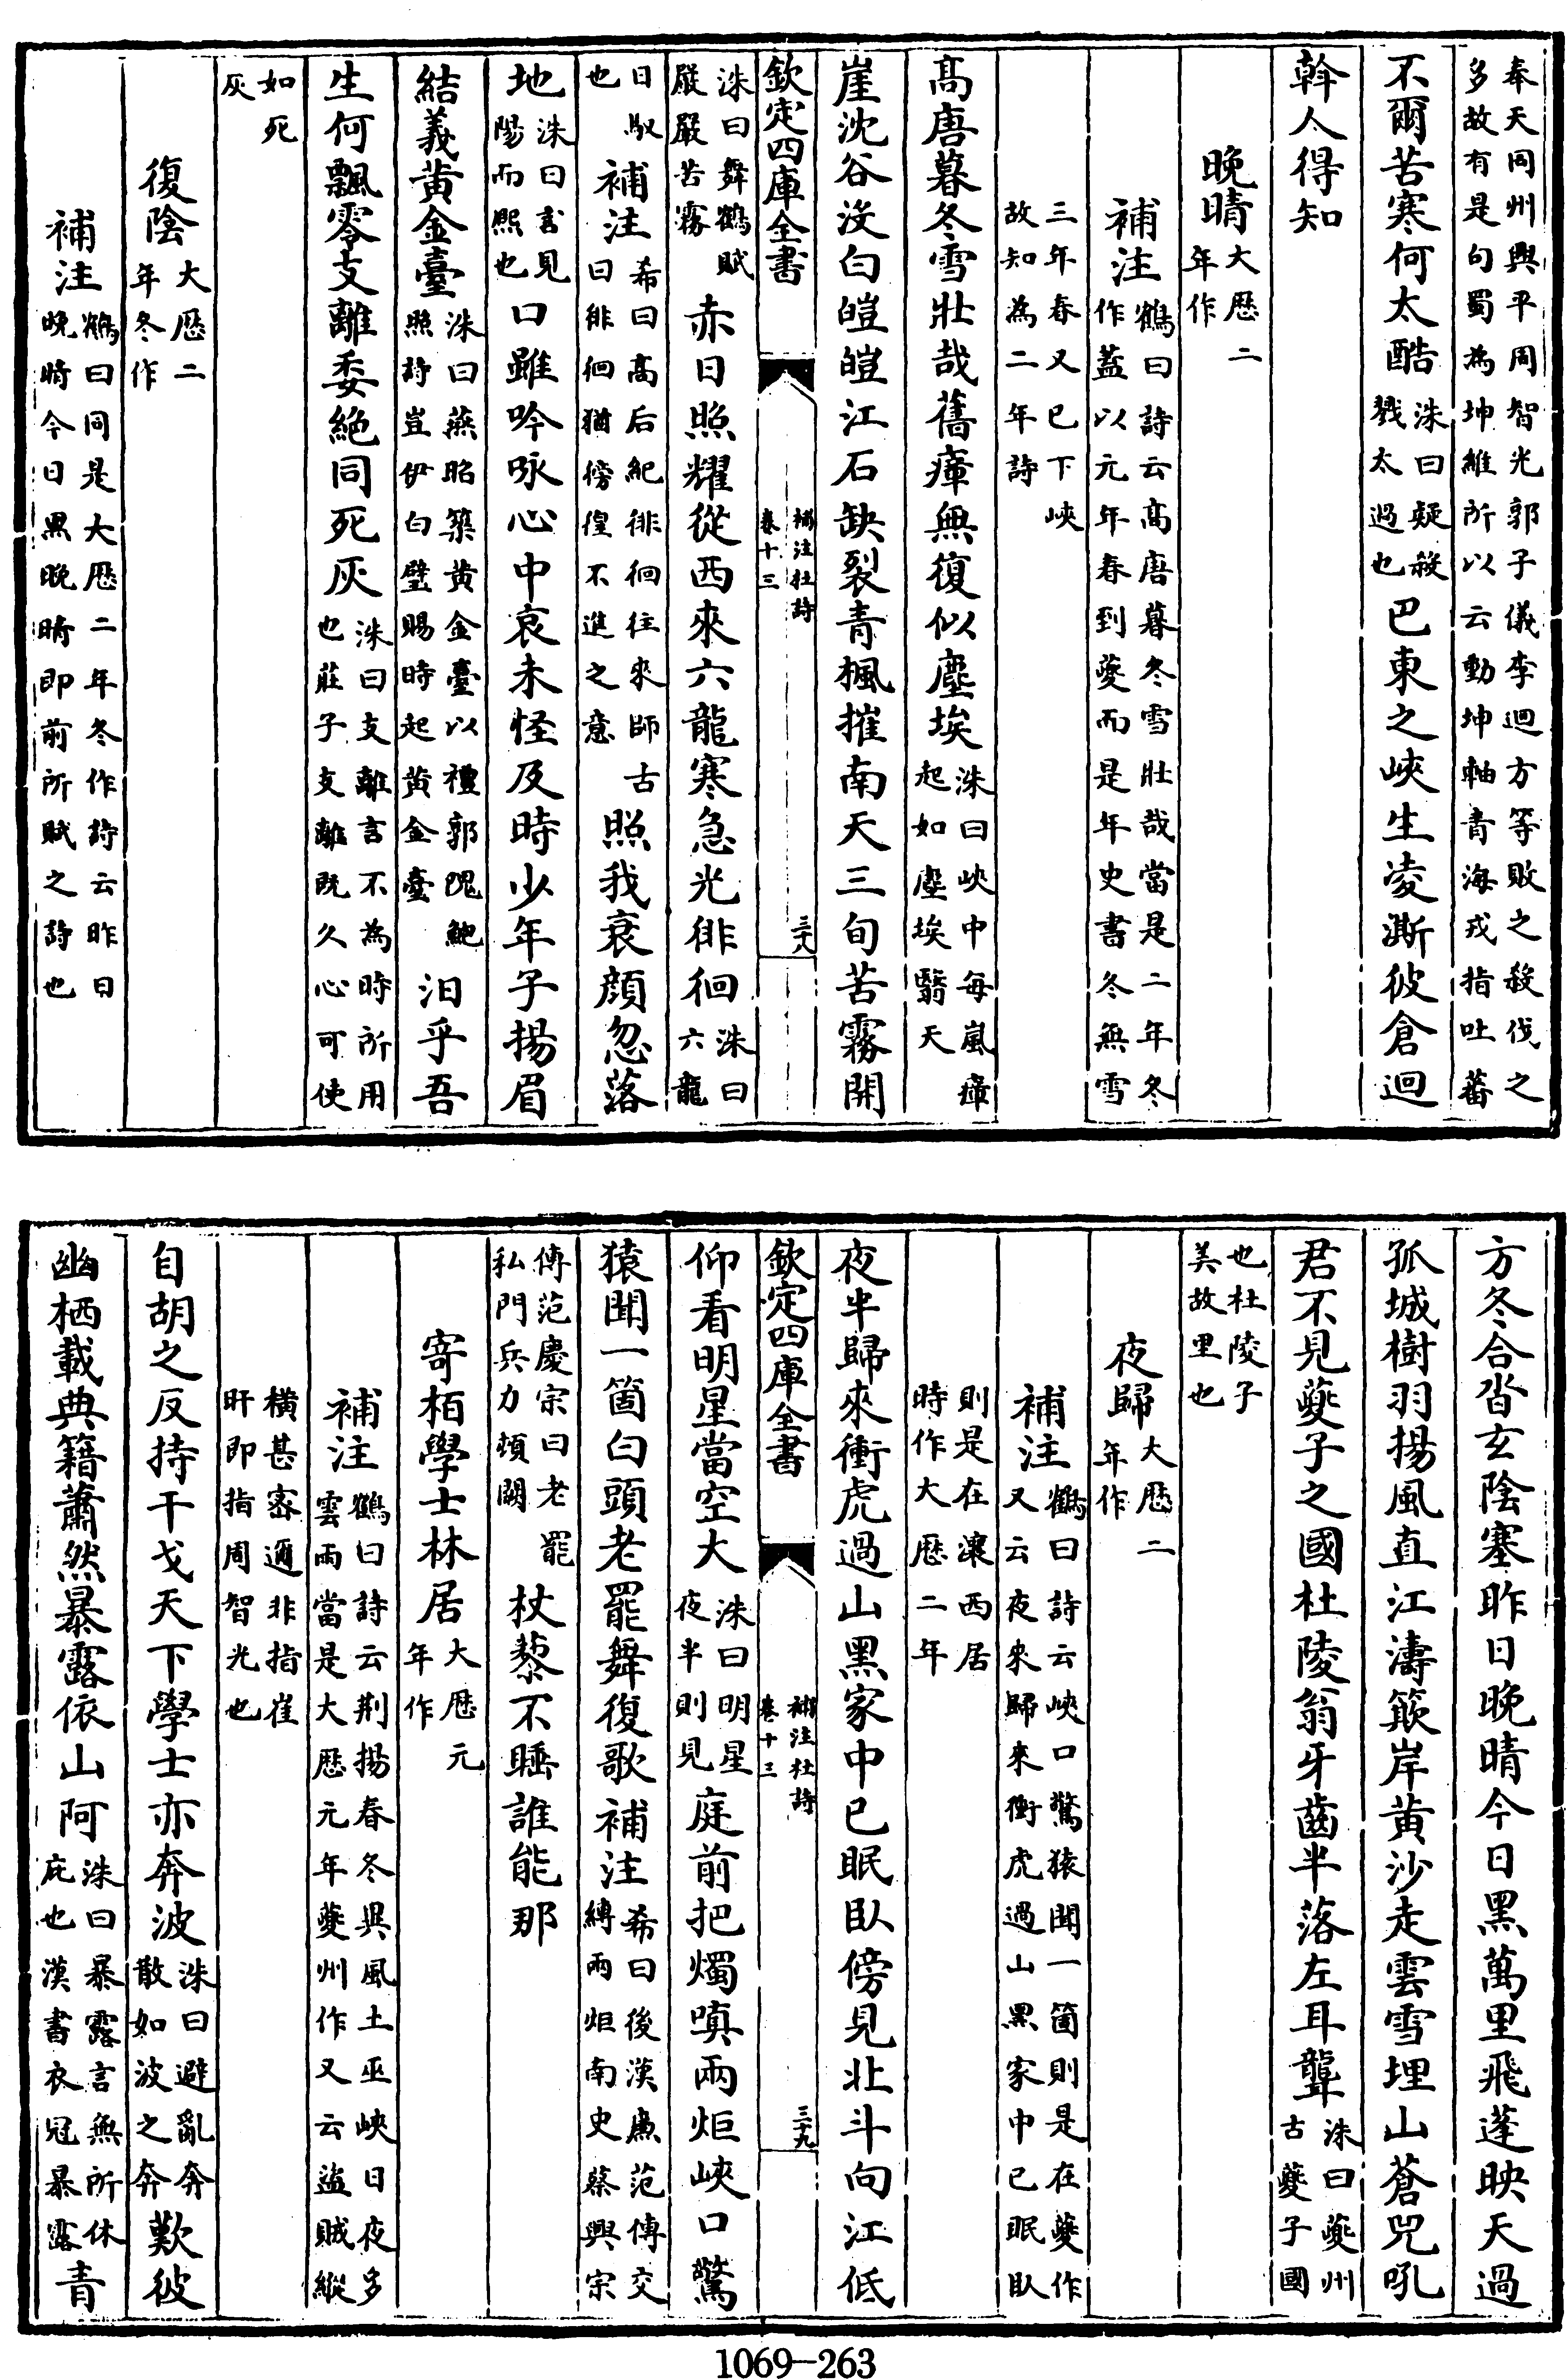 奉天同州興平周智光郭子儀李迴方等敗之殺伐之
多故有是句蜀為坤維所以云動坤軸青海戎指吐蕃
不爾苦寒何太酷洙曰疑殺戮太過也巴東之峽生凌澌彼倉迴
斡人得知
晚晴大歴二年作
補注鶴曰詩云髙唐暮冬雪壯哉當是二年冬作葢以元年春到夔而是年史書冬無雪
三年春又已下峽故知為二年詩
髙唐暮冬雪壯哉舊瘴無復似塵埃洙曰峽中每嵐瘴起如塵埃翳天
崖沈谷沒白皚皚江石缺裂青楓摧南天三旬苦霧開
欽定四庫全書
補注杜詩
卷十三
三十八
洙曰舞鶴賦嚴嚴苦霧赤日照耀從西來六龍寒急光徘徊洙曰六龍
日馭也補注希曰髙后紀徘徊往來師古曰徘徊猶傍徨不進之意照我衰顔忽落
地洙曰言見陽而熙也口雖吟咏心中哀未怪及時少年子揚眉
結義黄金臺洙曰燕昭築黄金臺以禮郭隗鮑照詩豈伊白璧賜時起黄金臺汨乎吾
生何飄零支離委絶同死灰洙曰支離言不為時所用也莊子支離既久心可使
如死灰
復陰大歴二年冬作
補注鶴曰同是大歴二年冬作詩云昨日晚時今日黒晚晴即前所賦之詩也
方冬合沓玄陰塞昨日晚晴今日黑萬里飛蓬映天過
孤城樹羽揚風直江濤簸岸黄沙走雲雪埋山蒼兕吼
君不見夔子之國杜陵翁牙齒半落左耳聾洙曰夔州古夔子國
也杜陵子美故里也
夜歸大歴二年作
補注鶴曰詩云峽口驚猿聞一箇則是在夔作又云夜來歸來衝虎過山黒家中已眠臥
則是在瀼西居時作大歴二年
夜半歸來衝虎過山黑家中已眠臥傍見北斗向江低
欽定四庫全書
補注杜詩
卷十三
三十九
仰看明星當空大洙曰明星夜半則見庭前把燭嗔兩炬峽口驚
猿聞一箇白頭老罷舞復歌補注希曰後漢廉范傳交縛兩炬南史蔡興宗
傳范慶宗曰老罷私門兵力頓闕杖藜不睡誰能那
寄栢學士林居大歴元年作
補注鶴曰詩云荆揚春冬異風土巫峽日夜多雲雨當是大歴元年夔州作又云盜賊縱
橫甚宻邇非指崔旰即指周智光也
自胡之反持干戈天下學士亦奔波洙曰避亂奔散如波之奔歎彼
幽栖載典籍蕭然暴露依山阿洙曰暴露言無所休庇也漢書衣冠暴露青
1069-263